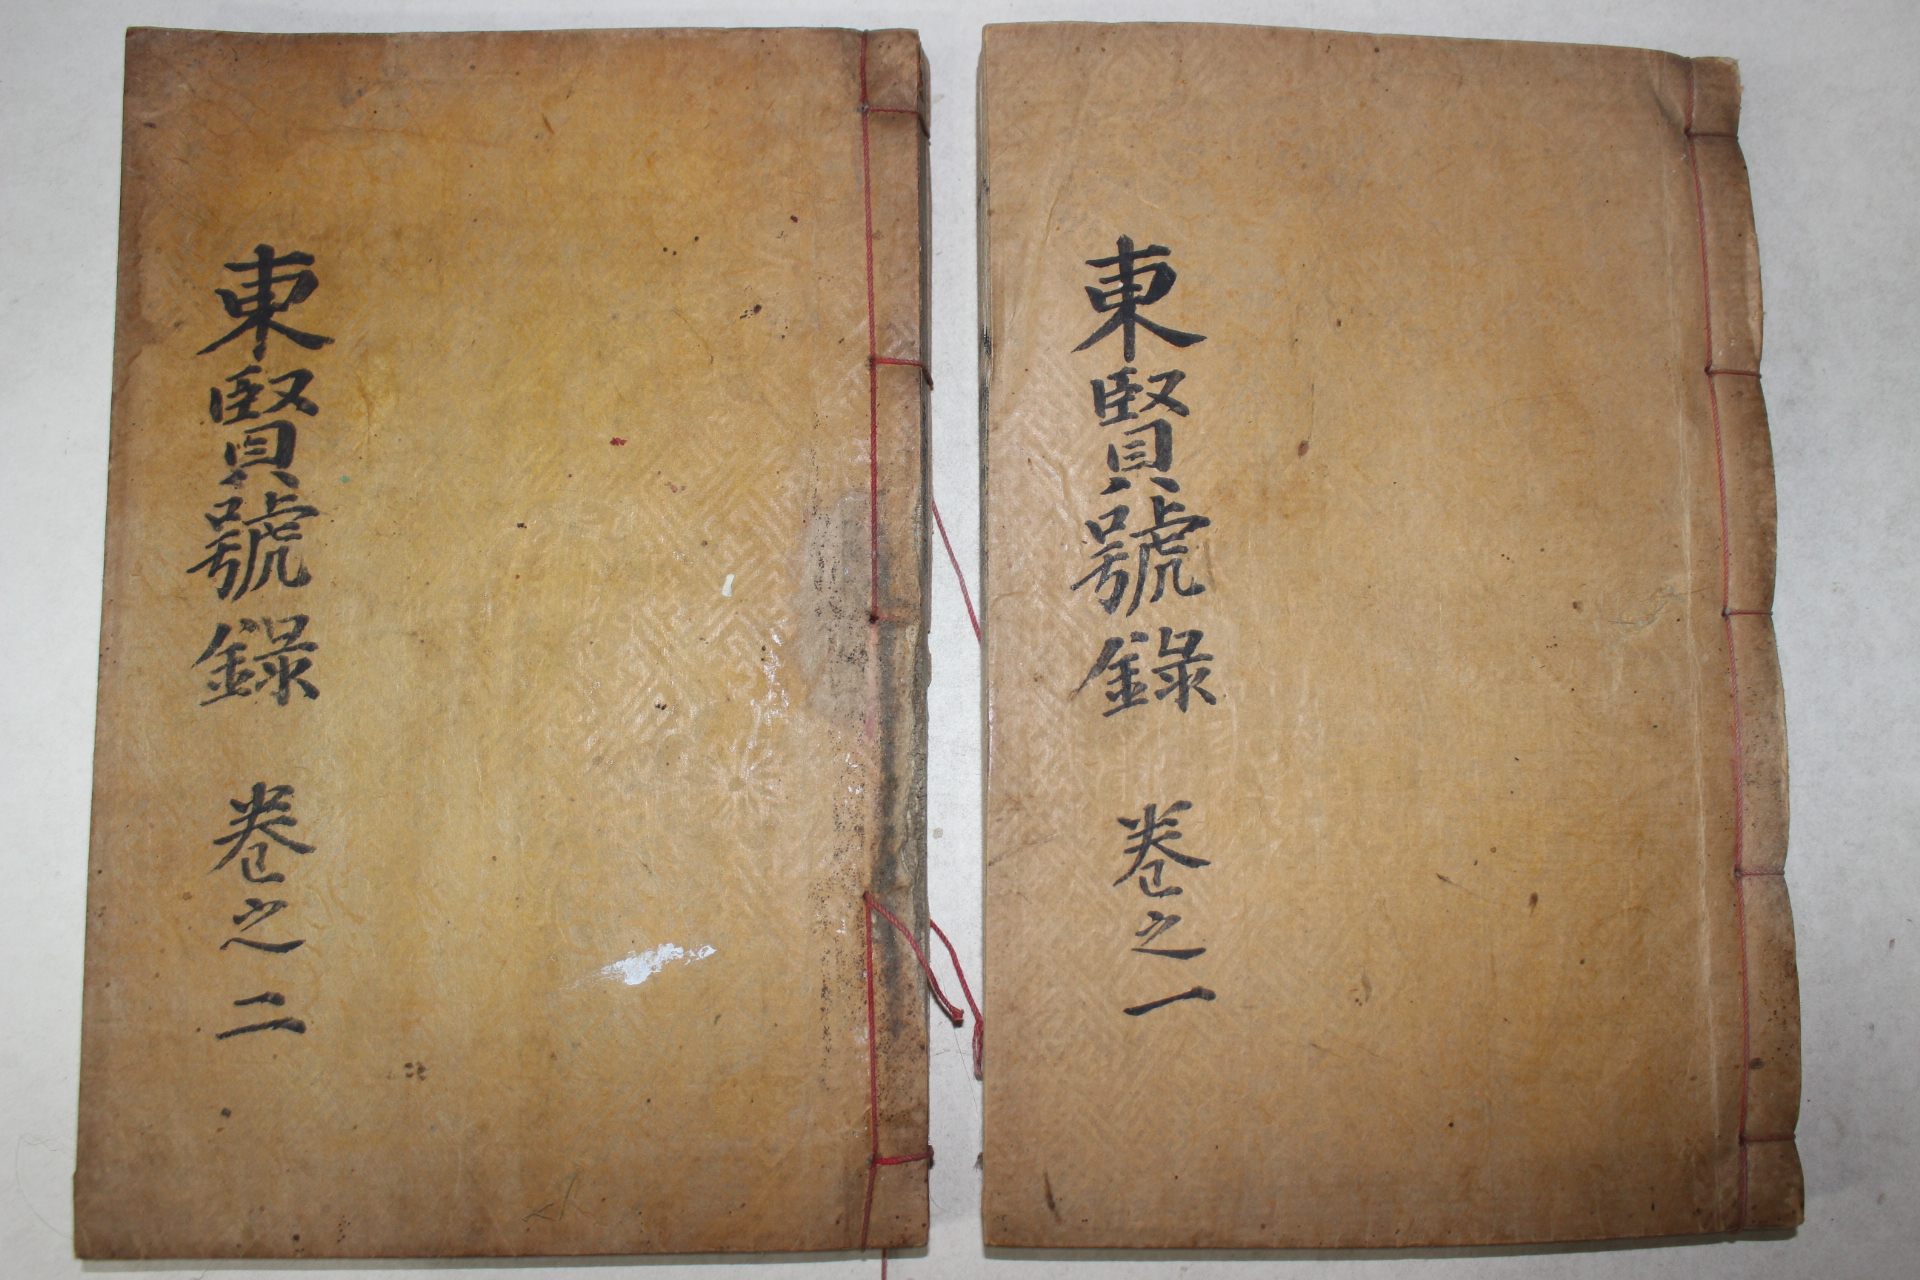 東賢號錄 卷之一
東賢號錄 卷之二